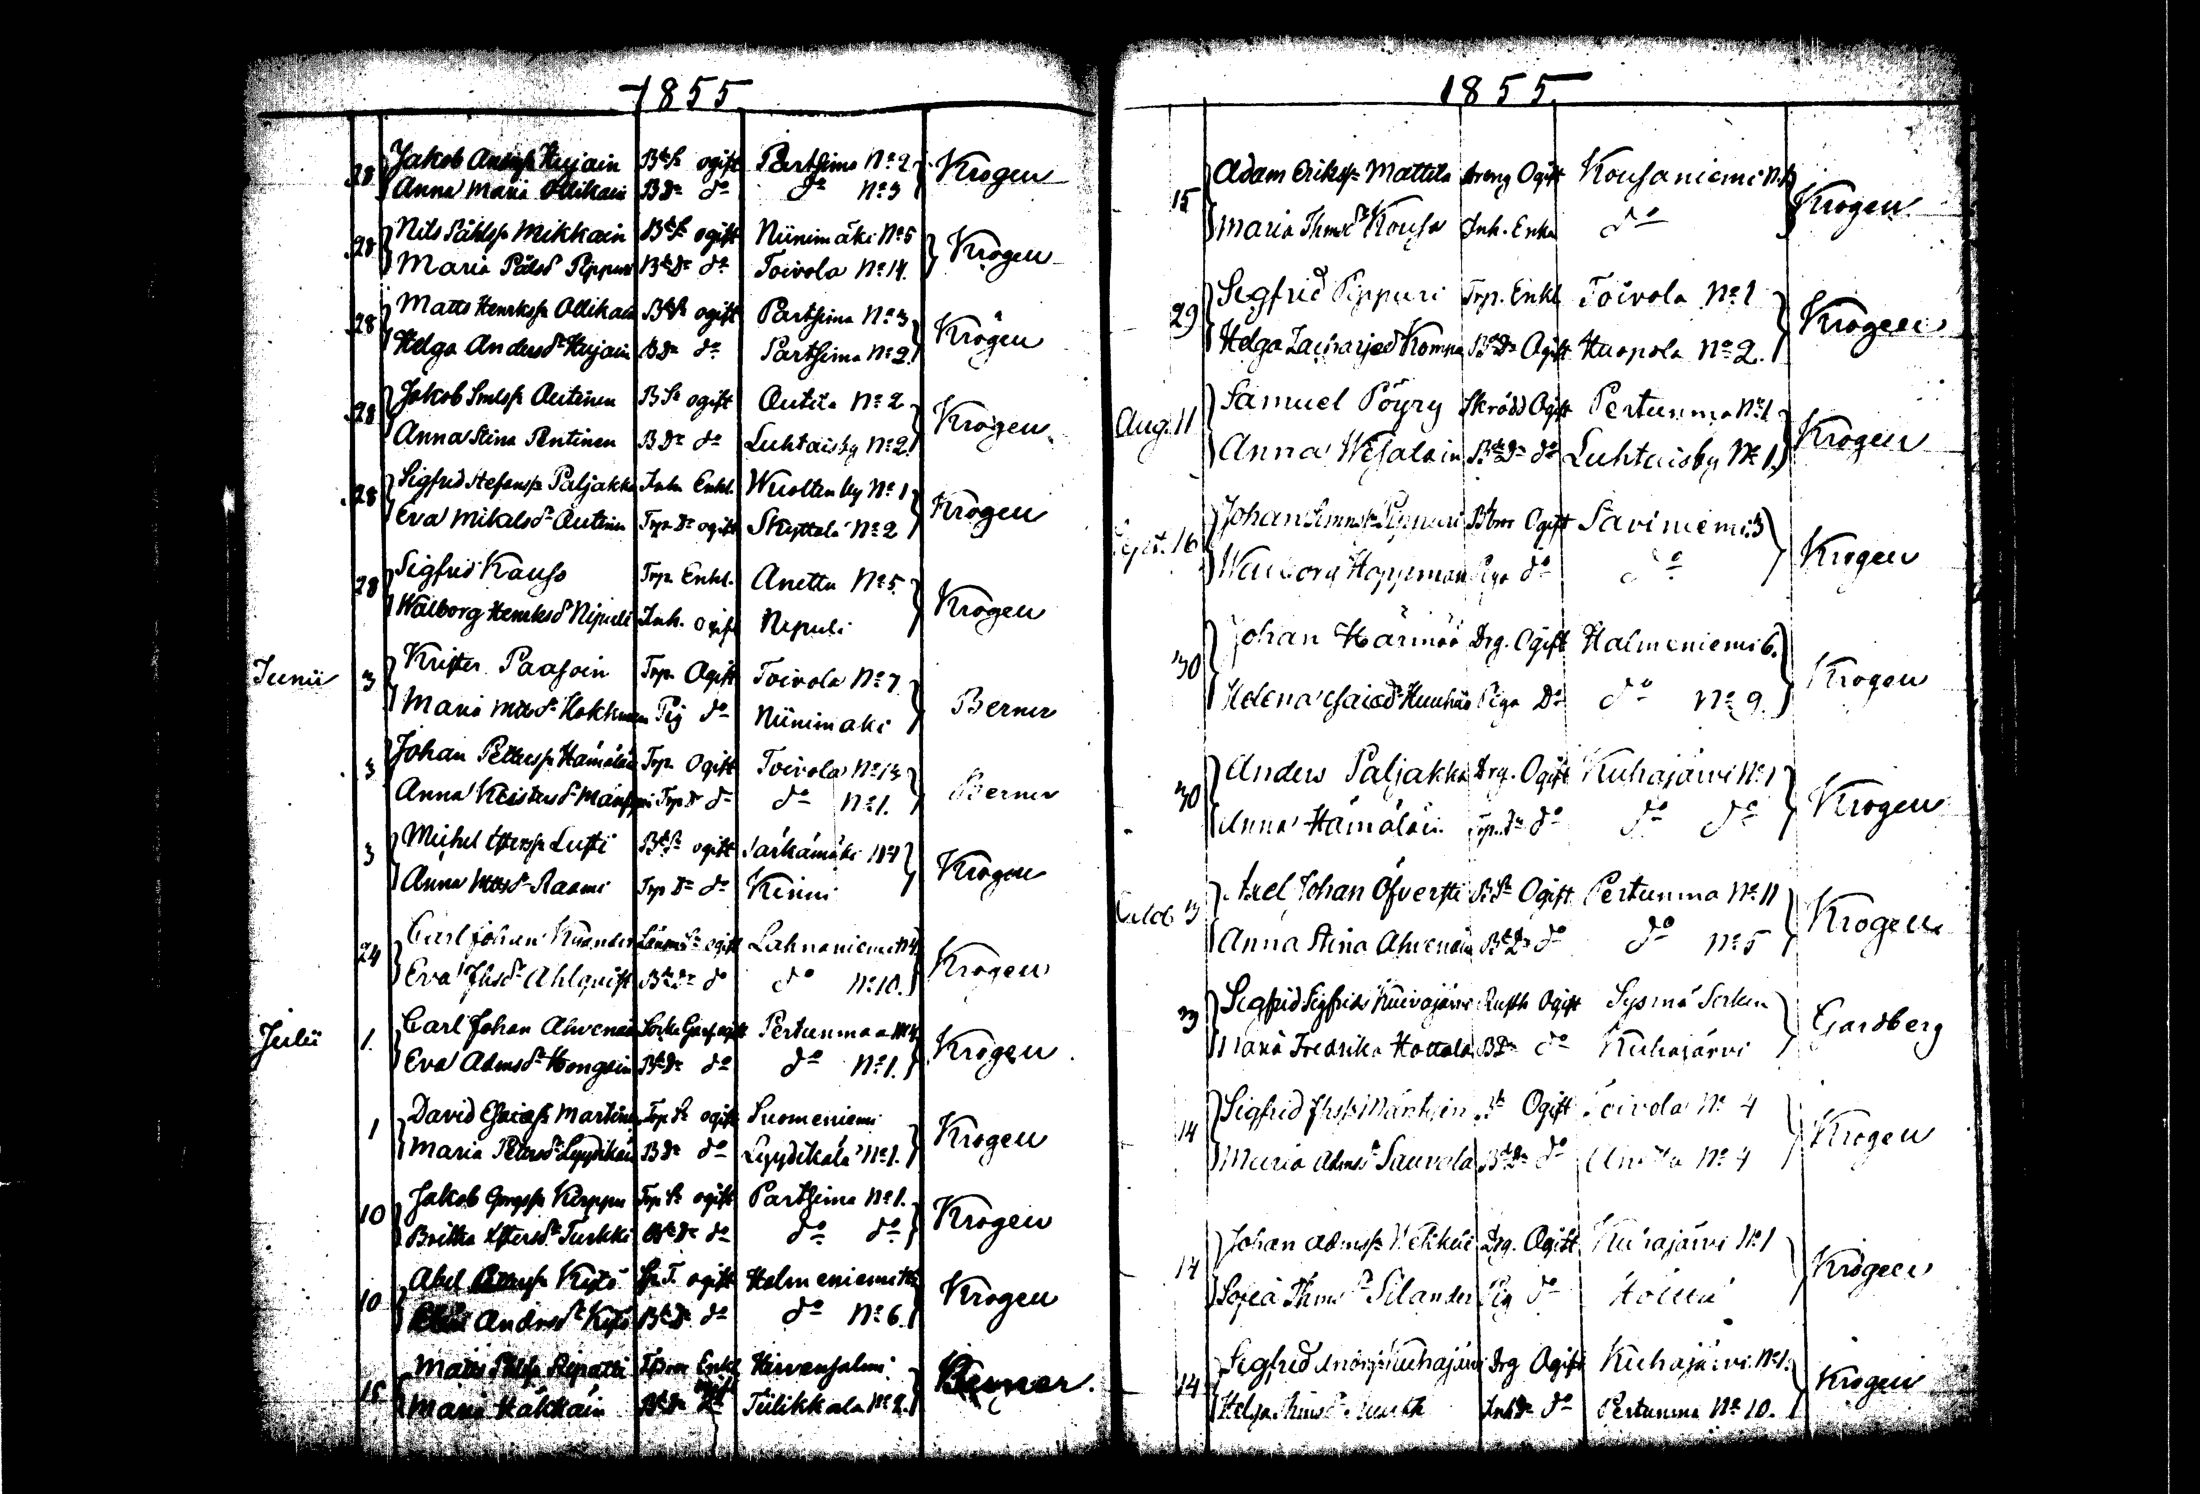 1855
28 Jakob Hujain Bd S. ogift Partsima No 2 Krogen
Anna Maria Ollikain B Dr do do No 3
28 Nils Påhlss Mikkain Bd S. ogift Niinimäki No 5 Krogen
Maria Pålsdr Pippuri Bd Dr do Toivola No 14
28 Matts Henrikss Ollikain Bd S. ogift Partsima No 3 Krogen
Helga Andersdr Hujain B Dr do Partsima No 2.
28 Jakob Smlss Autinen B S. ogift Autila No 2 Krogen
Anna Stina Pentinen B Dr do Luhtaisby No 2.
28 Sigfrid Stefanss Paljakka Inh. Enkl. Wuolten by No 1 Krogen
Eva Mikalsdr Autinen Trp Dr ogift Skyttälä No 2
28 Sigfrid Kausa Trp. Enkl. Anetta No 5 Krogen
Walborg Henriksdr Nipuli Inh. ogift Nipuli
Junii 3 Krister Paasoin Trp. Ogift Toivola No 7 Berner
Maria Mattsdr Hokkanen Pig do Niinimäki
3 Johan Petterss Hämäläin Trp. Ogift Toivola No 13 Berner
Anna Kristersdr Trp Dr do do No 1.
3 Michel Lusti Bd S. ogift Särkämäki No 4 Krogen
Anna Mattsdr Raami Trp Dr do Kinni
24 Carl Johan ogift Lahnaniemi No 4 Krogen
Eva Jhsdr Ahlqvist Bd Dr do do No 10.
Julii 1. Carl Johan Ahvenain ogift Pertunmaa No 4 Krogen
Eva Admsdr Hongain Bd Dr do do No 1.
1 David Esaiass Martinen Trp S. ogift Suomeniemi Krogen
Maria Pettersdr Lyydikäin B Dr do Lyydikälä No 1.
10 Jakob Kirppu Trp S. ogift Partsima No 1. Krogen
Britha Turkki Bd Dr do do do
10 Abel Kytö ogift Halmeniemi Krogen
Andersdr Kytö Bd Dr do do No 6.
15 Matts Påhlss Ripatti Enkl Hirvensalmi Berner.
Maria Häkkäin Bd Dr Tiilikkala No 2.
1855
15 Adam Erikss Mattila dreng Ogift Kousaniemi No 1 Krogen
Maria Thmsdr Kousa Inh. Enka do
29 Segfrid Pippuri Trp. Enkl Toivola No 1 Krogen
Helga Zachariædr Bd Dr Ogift Kuopola No 2.
Aug. 11 Samuel Pöyry Skrädd Ogift Pertunma No 1 Krogen
Anna Wesalain Bd Dr do Luhtaisby No 1.
Sept. 16 Johan Pippuri Ogift Saviniemi 3 Krogen
Walborg Hyyrynen Piga do do
30 Johan Härmää Drg. Ogift Halmeniemi 6. Krogen
Helena Esaiædr Piga Do do No 9.
30 Anders Paljakka Drg. Ogift Kuhajärvi No 1 Krogen
Anna Hämäläin Trp. Dr do do do
Octob. 3 Axel Johan Öfversti B S. Ogift Pertunma No 11 Krogen
Anna Stina Ahvenain Bd Dr do do No 5
3 Segfrid Sigfrids Kuivajärvi Rusth Ogift Sysmä Socken Gardberg
Maria Fredrika Hottola B Dr do Kuhajärvi
14 Sigfrid Jhss Mäntyin Ogift Toivola No 4 Krogen
Maria Admsdr Sauvala Bd Dr do Anetta No 4
14 Johan Admss Drg. Ogift Kuhajärvi No 1 Krogen
Sofia Thmsdr Silander Pig do
14 Segfrid Kuhajärvi Drg Ogift Kuhajärvi No 1. Krogen
Helga Thmsdr do Pertunma No 10.